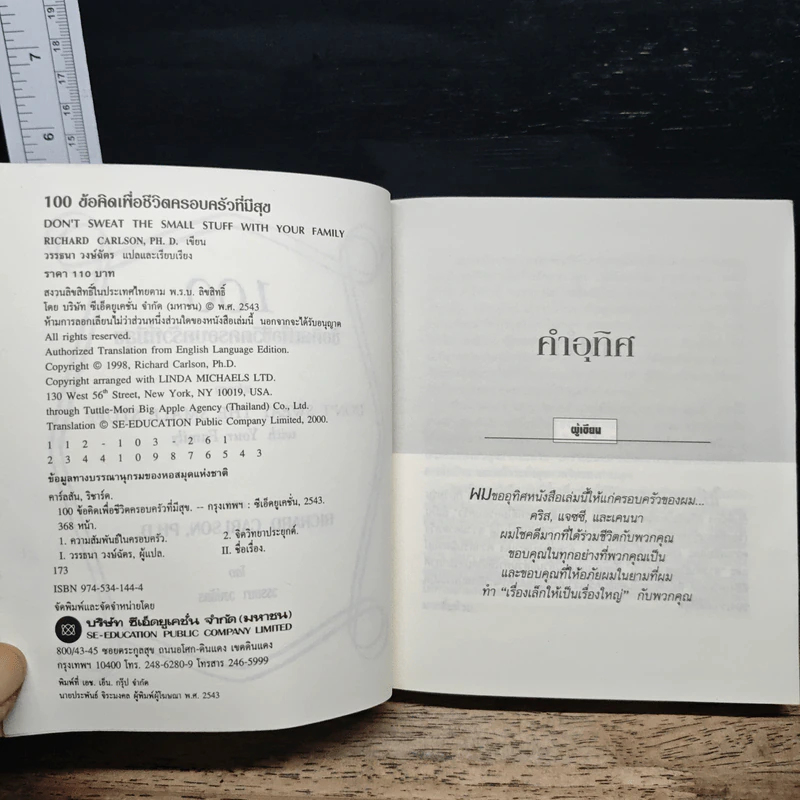 100 ข้อคิดเพื่อชีวิตครอบครัวที่มีสุข
DON'T SWEAT THE SMALL STUFF WITH YOUR FAMILY
RICHARD CARLSON, PH. D. เขียน
วรรธนา วงษ์ฉัตร แปลและเรียบเรียง
ราคา 110 บาท
สงวนลิขสิทธิ์ในประเทศไทยตาม พ.ร.บ. ลิขสิทธิ์
โดย บริษัท ซีเอ็ดยูเคชั่น จำกัด (มหาชน) © พ.ศ. 2543
ห้ามการลอกเลียนไม่ว่าส่วนหนึ่งส่วนใดของหนังสือเล่มนี้ นอกจากจะได้รับอนุญาต
All rights reserved.
Authorized Translation from English Language Edition.
Copyright © 1998, Richard Carlson, Ph.D.
Copyright arranged with LINDA MICHAELS LTD.
130 West 56th Street, New York, NY 10019, USA.
through Tuttle-Mori Big Apple Agency (Thailand) Co., Ltd.
Translation © SE-EDUCATION Public Company Limited, 2000.
1 1 2 - 1 0 3 - 2 6 1
2 3 4 4 1 0 9 8 7 6 5 4 3
ข้อมูลทางบรรณานุกรมของหอสมุดแห่งชาติ
คาร์ลสัน, ริชาร์ด.
100 ข้อคิดเพื่อชีวิตครอบครัวที่มีสุข. -- กรุงเทพฯ : ซีเอ็ดยูเคชั่น, 2543.
368 หน้า.
1. ความสัมพันธ์ในครอบครัว. 2. จิตวิทยาประยุกต์.
I. วรรธนา วงษ์ฉัตร, ผู้แปล. II. ชื่อเรื่อง.
173
ISBN 974-534-144-4
จัดพิมพ์และจัดจำหน่ายโดย
บริษัท ซีเอ็ดยูเคชั่น จำกัด (มหาชน)
SE-EDUCATION PUBLIC COMPANY LIMITED
800/43-45 ซอยตระกูลสุข ถนนอโศก-ดินแดง เขตดินแดง
กรุงเทพฯ 10400 โทร. 248-6280-9 โทรสาร 246-5999
พิมพ์ที่ เอช. เอ็น. กรุ๊ป จำกัด
นายประพันธ์ จิระมงคล ผู้พิมพ์ผู้โฆษณา พ.ศ. 2543
คำอุทิศ
ผู้เขียน
ผมขออุทิศหนังสือเล่มนี้ให้แก่ครอบครัวของผม...
คริส, แจซซี, และเคนนา
ผมโชคดีมากที่ได้ร่วมชีวิตกับพวกคุณ
ขอบคุณในทุกอย่างที่พวกคุณเป็น
และขอบคุณที่ให้อภัยผมในยามที่ผม
ทำ “เรื่องเล็กให้เป็นเรื่องใหญ่” กับพวกคุณ